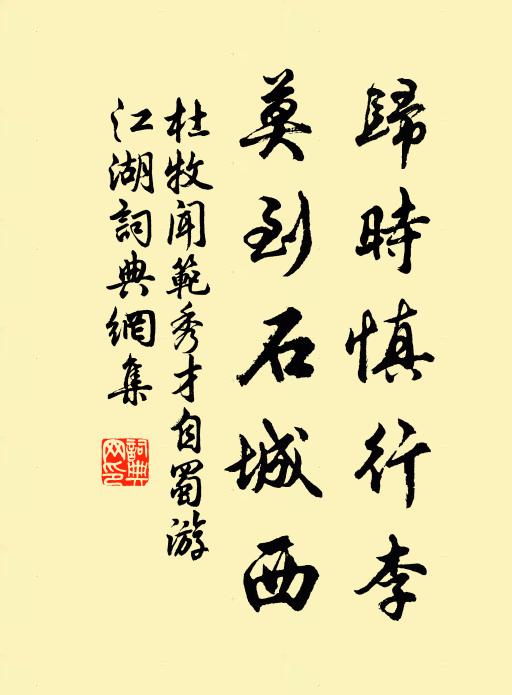 歸時慎行李
莫到石城西
杜牧聞範秀才自蜀游
江湖詞典網集
詞典网印